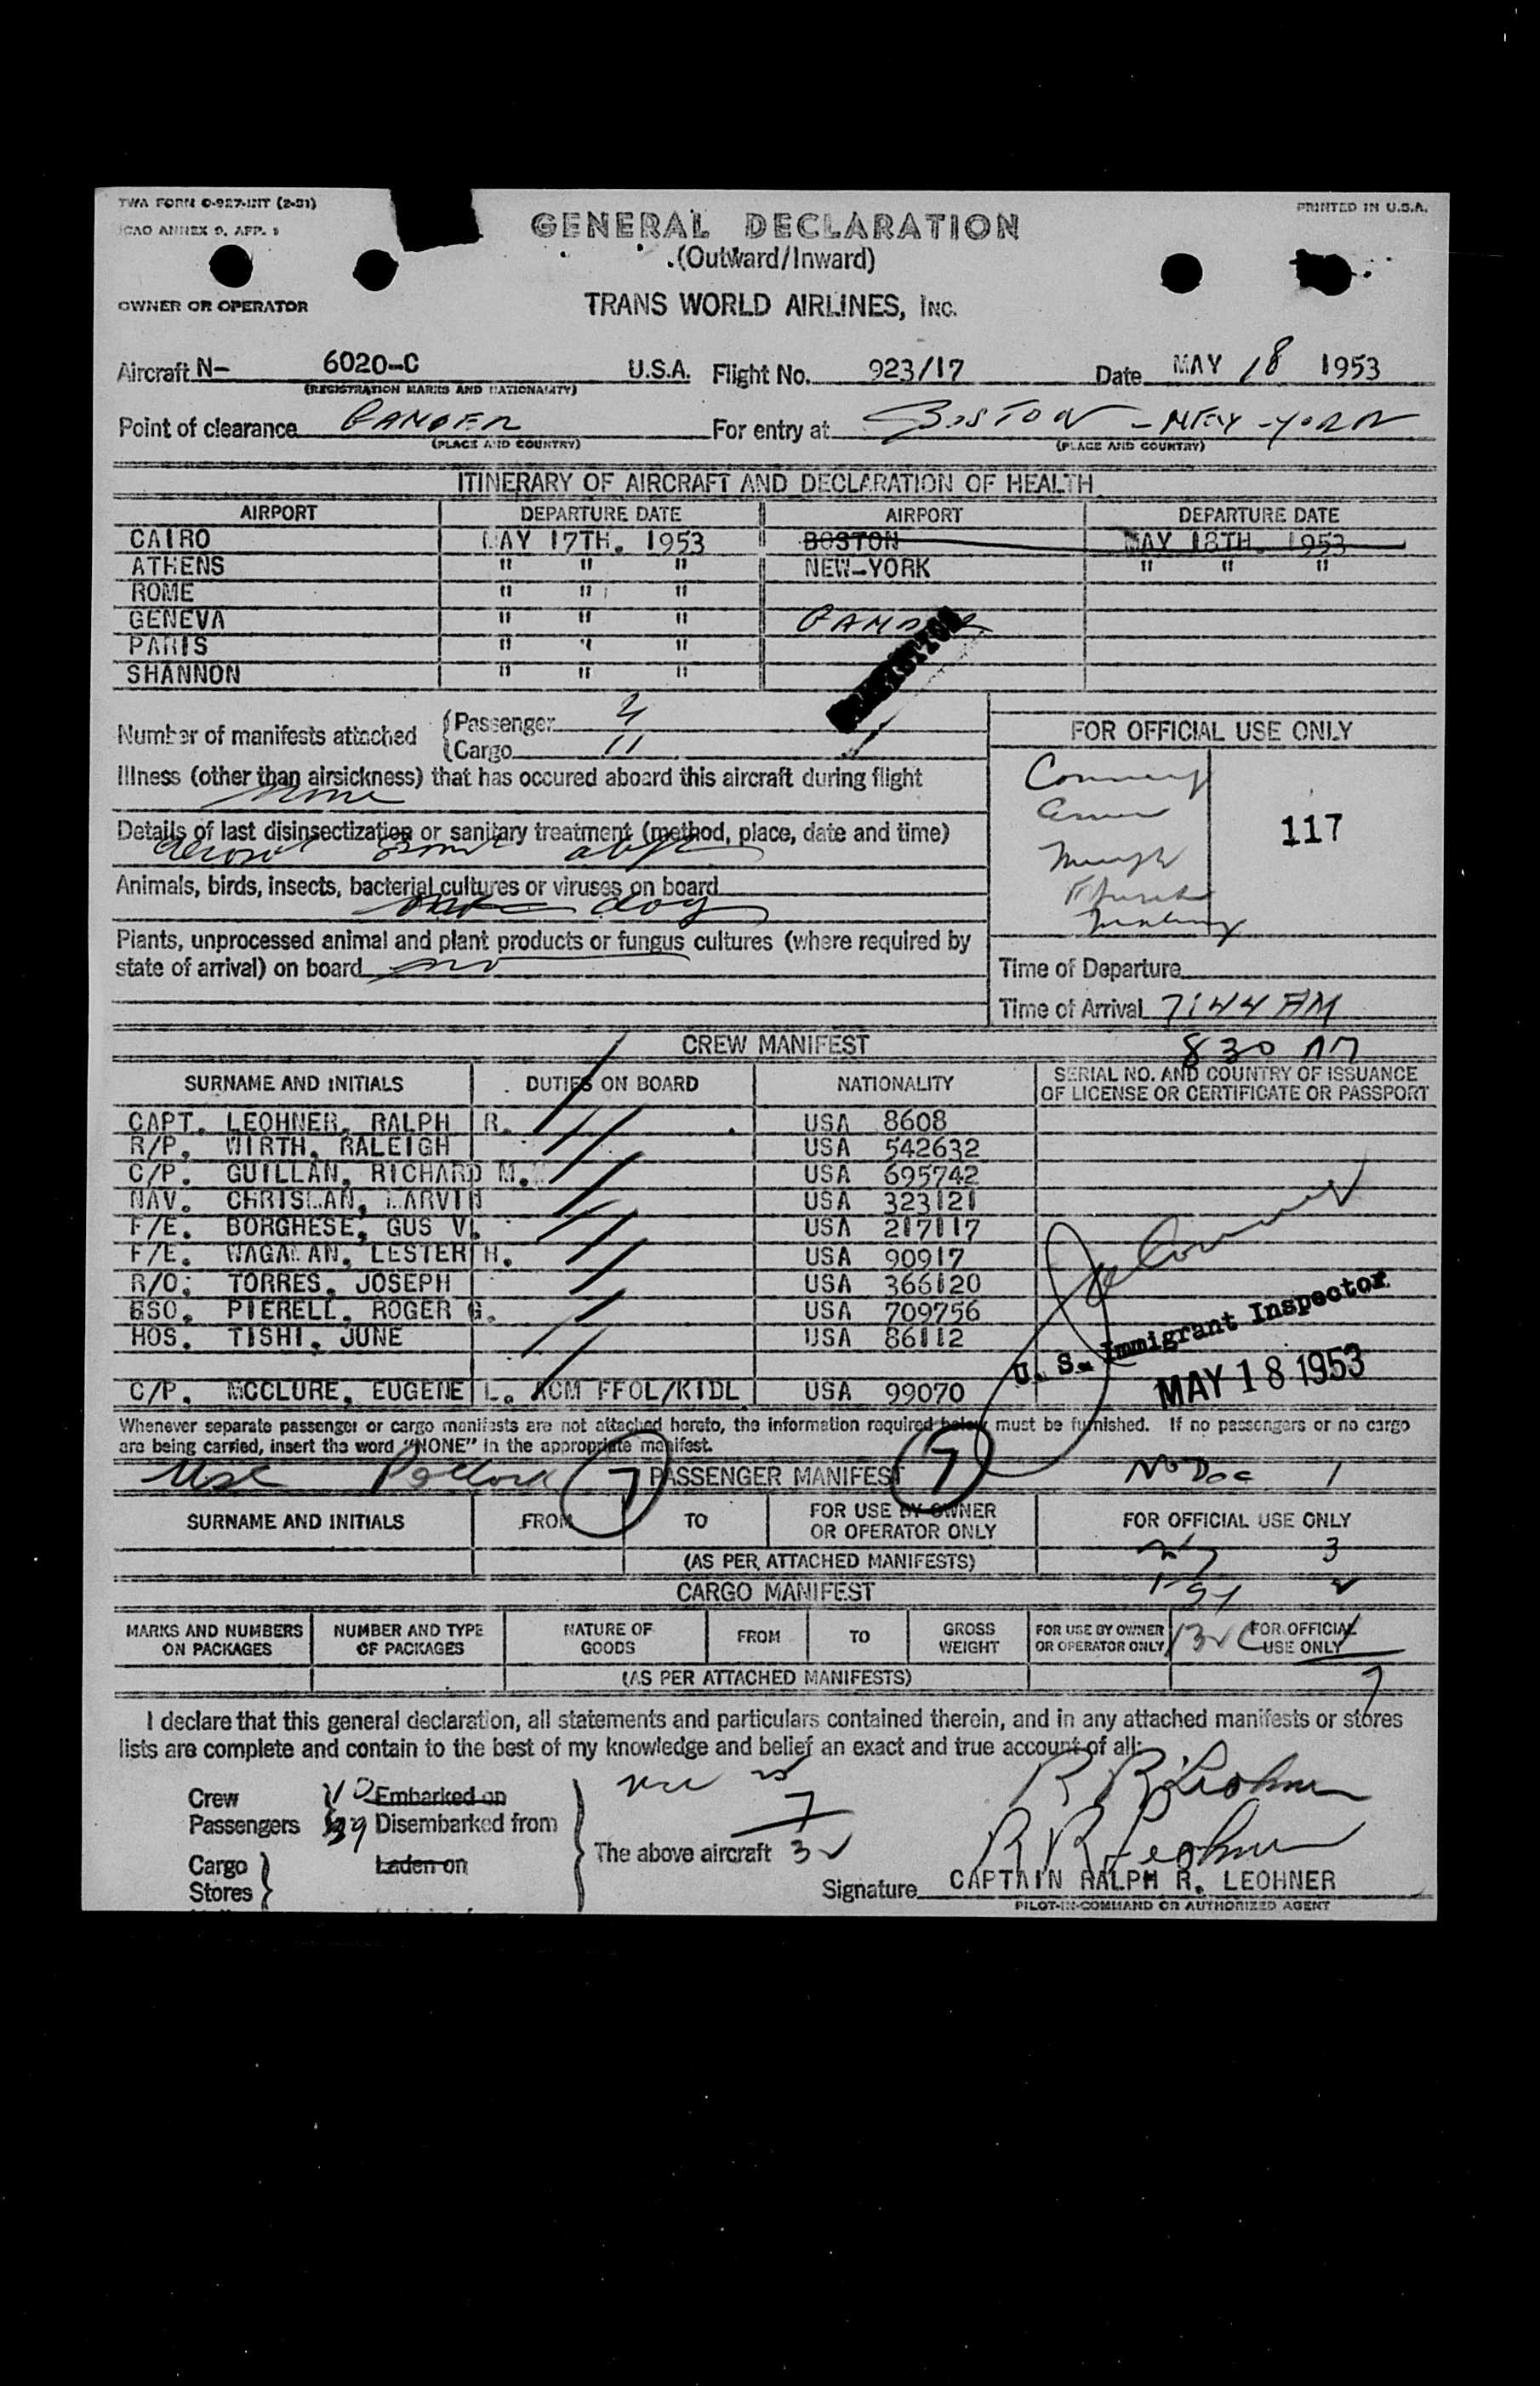 TWA FORM O-927-INT (2-51)
PRINTED IN U.S.A.
ICAO ANNEX 9, APP. 1
GENERAL DECLARATION
(Outward/Inward)
OWNER OR OPERATOR
TRANS WORLD AIRLINES, INC.
Aircraft N- 6020-C U.S.A. Flight No. 923/17 Date MAY 18 1953
(REGISTRATION MARKS AND NATIONALITY)
Point of clearance GANDER For entry at BOSTON - NEW-YORK
(PLACE AND COUNTRY) (PLACE AND COUNTRY)
ITINERARY OF AIRCRAFT AND DECLARATION OF HEALTH
AIRPORT DEPARTURE DATE AIRPORT DEPARTURE DATE
CAIRO MAY 17TH. 1953 BOSTON MAY 18TH. 1953
ATHENS " " " NEW-YORK " " "
ROME " " "
GENEVA " " " GANDER
PARIS " " "
SHANNON " " "
Number of manifests attached
Passenger
Cargo 11
FOR OFFICIAL USE ONLY
Illness (other than airsickness) that has occured aboard this aircraft during flight
none
117
Details of last disinsectization or sanitary treatment (method, place, date and time)
Animals, birds, insects, bacterial cultures or viruses on board
dog
Plants, unprocessed animal and plant products or fungus cultures (where required by
state of arrival) on board no
Time of Departure
Time of Arrival 7:44 AM
830 AM
CREW MANIFEST
SURNAME AND INITIALS DUTIES ON BOARD NATIONALITY SERIAL NO. AND COUNTRY OF ISSUANCE
OF LICENSE OR CERTIFICATE OR PASSPORT
CAPT. LEOHNER, RALPH R. USA 8608
R/P. WIRTH, RALEIGH USA 542632
C/P. GUILLAN, RICHARD M. USA 695742
NAV. USA 323121
F/E. BORGHESE, GUS V. USA 217117
F/E. WAGAMAN, LESTER H. USA 90917
R/O. TORRES, JOSEPH USA 366120
BSO. PIERELL, ROGER G. USA 709756
HOS. TISHI, JUNE USA 86112
U. S. Immigrant Inspector
MAY 18 1953
C/P. MCCLURE, EUGENE L. ACM FFOL/KIDL USA 99070
Whenever separate passenger or cargo manifests are not attached hereto, the information required below must be furnished. If no passengers or no cargo
are being carried, insert the word "NONE" in the appropriate manifest.
7 PASSENGER MANIFEST 7 No Doc 1
SURNAME AND INITIALS FROM TO FOR USE BY OWNER
OR OPERATOR ONLY FOR OFFICIAL USE ONLY
(AS PER ATTACHED MANIFESTS) 3
CARGO MANIFEST
MARKS AND NUMBERS
ON PACKAGES NUMBER AND TYPE
OF PACKAGES NATURE OF
GOODS FROM TO GROSS
WEIGHT FOR USE BY OWNER
OR OPERATOR ONLY FOR OFFICIAL
USE ONLY
(AS PER ATTACHED MANIFESTS) 7
I declare that this general declaration, all statements and particulars contained therein, and in any attached manifests or stores
lists are complete and contain to the best of my knowledge and belief an exact and true account of all:
Crew 10 Embarked on
Passengers 39 Disembarked from
7
R R Leohner
The above aircraft
R R Leohner
Cargo Laden on
Stores
Signature CAPTAIN RALPH R. LEOHNER
PILOT-IN-COMMAND OR AUTHORIZED AGENT